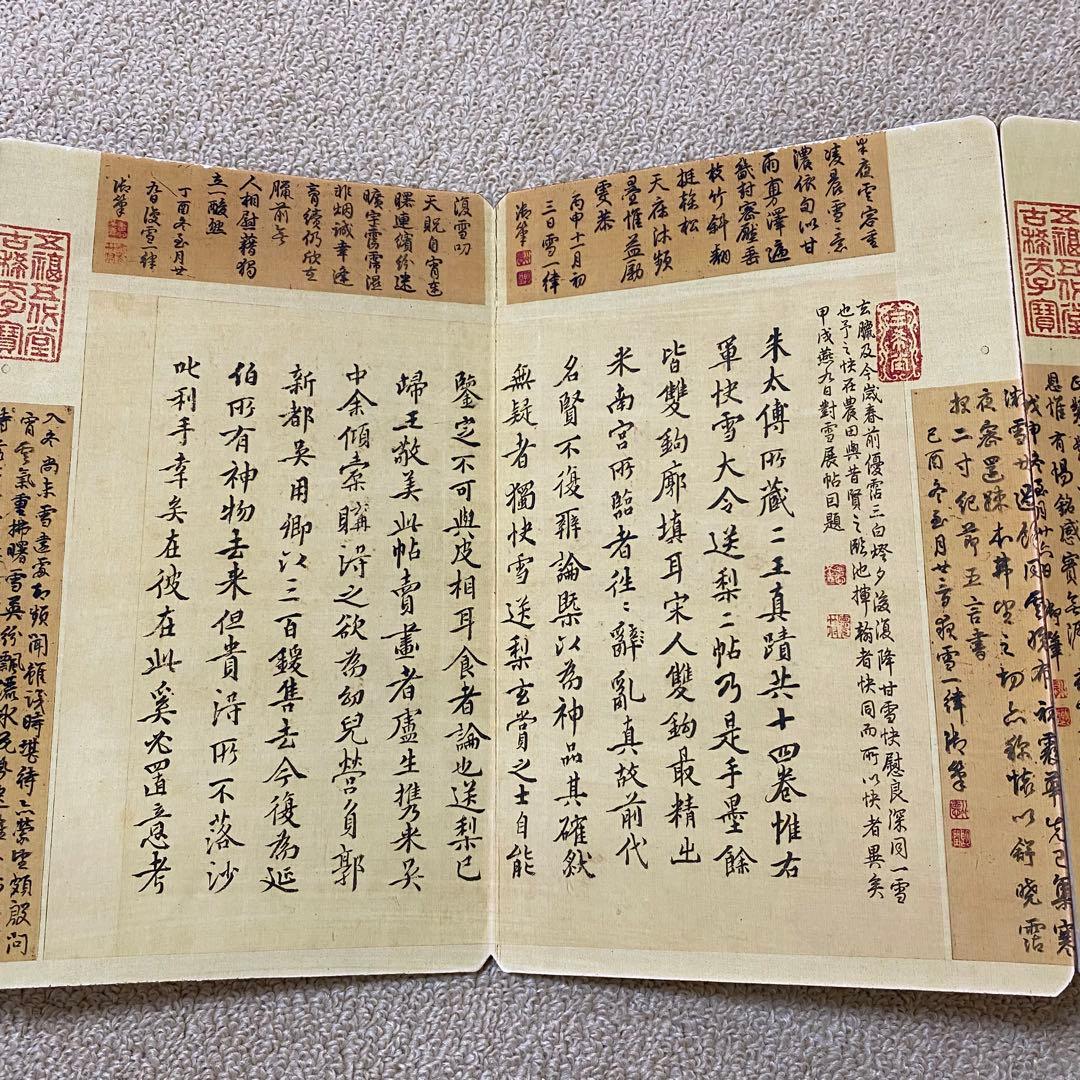 五福五代堂
古稀天子寶
夜密還疎
投二寸紀節五言書
己酉冬至月廿
雪一律御筆
玄臘及今歲春前優霑三白燈夕後復降甘雪快慰良深同一雪
也予之快在農田與昔賢之臨池揮翰者快同而所以快者異矣
甲戌燕九日對雪展帖因題
半夜雲容重
凌晨雪意
濃依旬以甘
雨剪澤
畿封密壓垂
枝竹斜翻
挺榦松
天庥沐頻
疊惟益勵
雯恭
丙申十一月初
三日雪一律
御筆
朱太傅所藏二王真蹟共十四卷惟右
軍快雪大令送梨二帖乃是手墨餘
皆雙鉤廓填耳宋人雙鉤最精出
米南宮所臨者往〻辭亂真故前代
名賢不復辨論槩以為神品其確然
無疑者獨快雪送梨玄賞之士自能
復雪叨
天貺自宵達
曙連繽紛迷
曠宇霡霂濕
非烟誠幸逢
膏續仍欣在
臘前無
人相慰藉獨
立一酸然
丁酉冬至月廿
九日復雪一律
御筆
鑒定不可與皮相耳食者論也送梨已
歸王敬美此帖賣畫者盧生携来吳
中余傾橐購得之欲為幼兒營負郭
新都吳用卿以三百鍰售去今復為延
伯所有神物去来但貴得所不落沙
叱利手幸矣在彼在此奚必置意考
五福五代堂
古稀天子寶
入冬尚未雪
宵雲氣重拂曙雪英紛飄